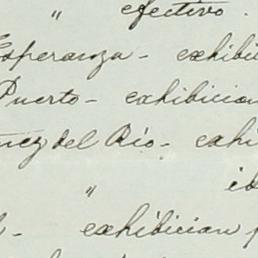 " efectivo.
Esperanza - exhibic
Puerto - exhibicion
nez del Rio - exhi
" id
- exhibicion p